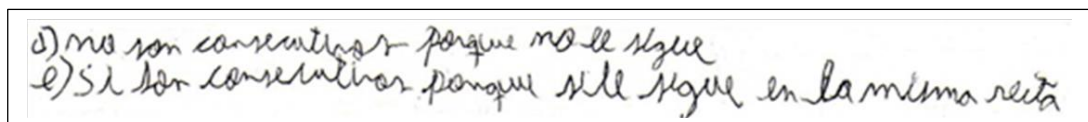 d) no son consecutivos porque no le sigue
e) si son consecutivos porque si le sigue en la misma recta